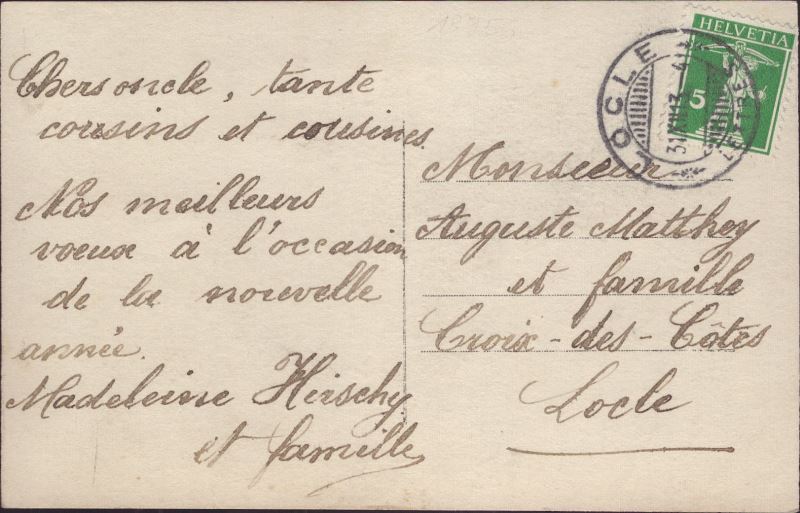 Chers oncle, tante
cousins et cousines.
Nos meilleurs
voeux à l'occasion
de la nouvelle
année.
Madeleine Hirschy
et famille
Monsieur
Auguste Matthey
et famille
Croix-des-Côtes
Locle
HELVETIA
5
LOCLE